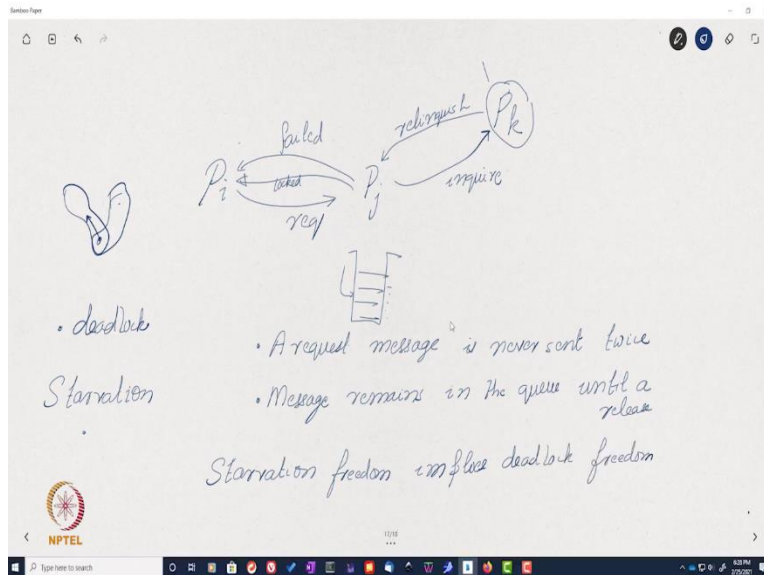 Bamboo Paper
failed
relinquish
P_k
P_i
locked
P_j
inquire
req
• deadlock
• A request message is never sent twice
Starvation
• Message remains in the queue until a
release
Starvation freedom implies deadlock freedom
NPTEL
17/18
Type here to search
9:28 PM
2/25/2021